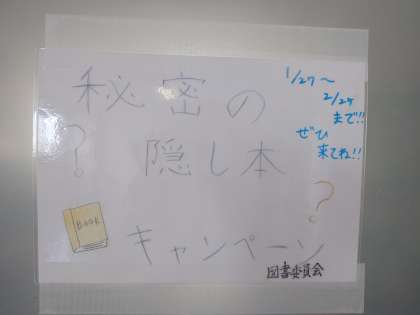 秘密の
隠し本
キャンペーン
1/27〜
2/25
まで!!
ぜひ
来てね!!
?
?
BOOK
図書委員会